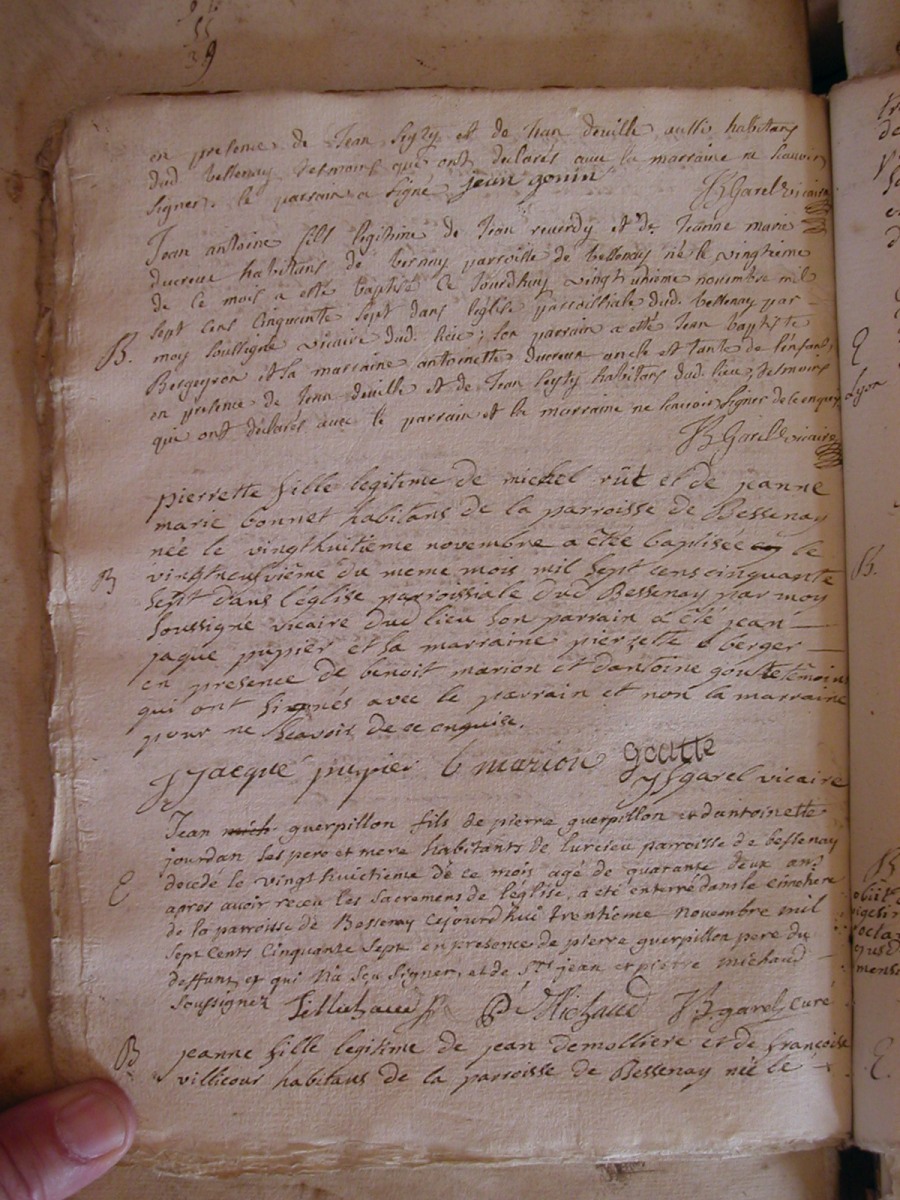 en presence de Jean et de Jean deville aussi habitans
dud. Bessenay tesmoins qui ont declarés avec la marraine ne scavoir
signer. le parrain a signé jean gonin
Garel vicaire
Jean antoine fils legitime de Jean reverdy et de Jeanne marie
ducreux habitans de bernay parroisse de bessenay né le vingtieme
de ce mois a esté baptisé ce Jourdhuy vingt unieme novembre mil
sept cens cinquante sept dans leglise parroissiale dud. bessenay par
B. moy soussigné vicaire dud. lieu; son parrain a esté Jean baptiste
Bergeyron et la marraine antoinette ducreux oncle et tante de lenfant,
en presence de Jean deville et de Jean habitans dud. lieu, tesmoins
qui ont declarés avec le parrain et la marraine ne scavoir signer de ce enquis
Garel vicaire
pierrette fille legitime de michel rût et de jeanne
marie bonnet habitans de la parroisse de Bessenay
née le vingthuitieme novembre a été baptisée le
B vingtneuvième du meme mois mil sept cens cinquante
sept dans l'église parroissiale dud Bessenay par moy
soussigné vicaire dud lieu son parrain a été jean
jaque pupier et sa marraine pierrette berger
en presence de benoit marion et dantoine goutte témoins
qui ont sinnés avec le parrain et non la marraine
pour ne scavoir de ce enquise.
J Jacque pupier b marion goutte
garel vicaire
Jean mich guerpillon fils de pierre guerpillon et dantoinette
jourdan ses pere et mere habitants de lurcieu parroisse de bessenay
E decedé le vingt huictieme de ce mois agé de quarante deux ans
après avoir receu les sacremens de l'église, a été enterré dans le cimetiere
de la parroisse de Bessenay cejourdhui trentième novembre mil
sept cents cinquante sept en presence de pierre guerpillon pere du
deffunt et qui n'a sçu signer, et de Srs jean et pierre michaud
soussignez P Michaud garel curé
B jeanne fille legitime de jean demolliere et de francoise
villecour habitans de la parroisse de Bessenay née le